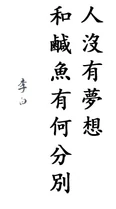 人沒有夢想
和鹹魚有何分別
李白